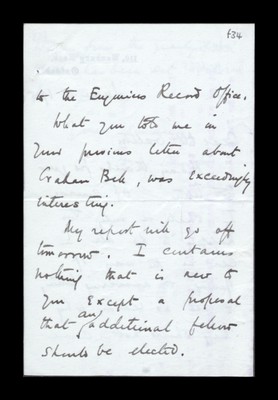 f34
to the Eugenics Record Office.
What you told me in
your previous letter about
Graham Bell, was exceedingly
interesting.
My report will go off
tomorrow. I contains
nothing that is new to
you except a proposal
that an additional fellow
should be elected.